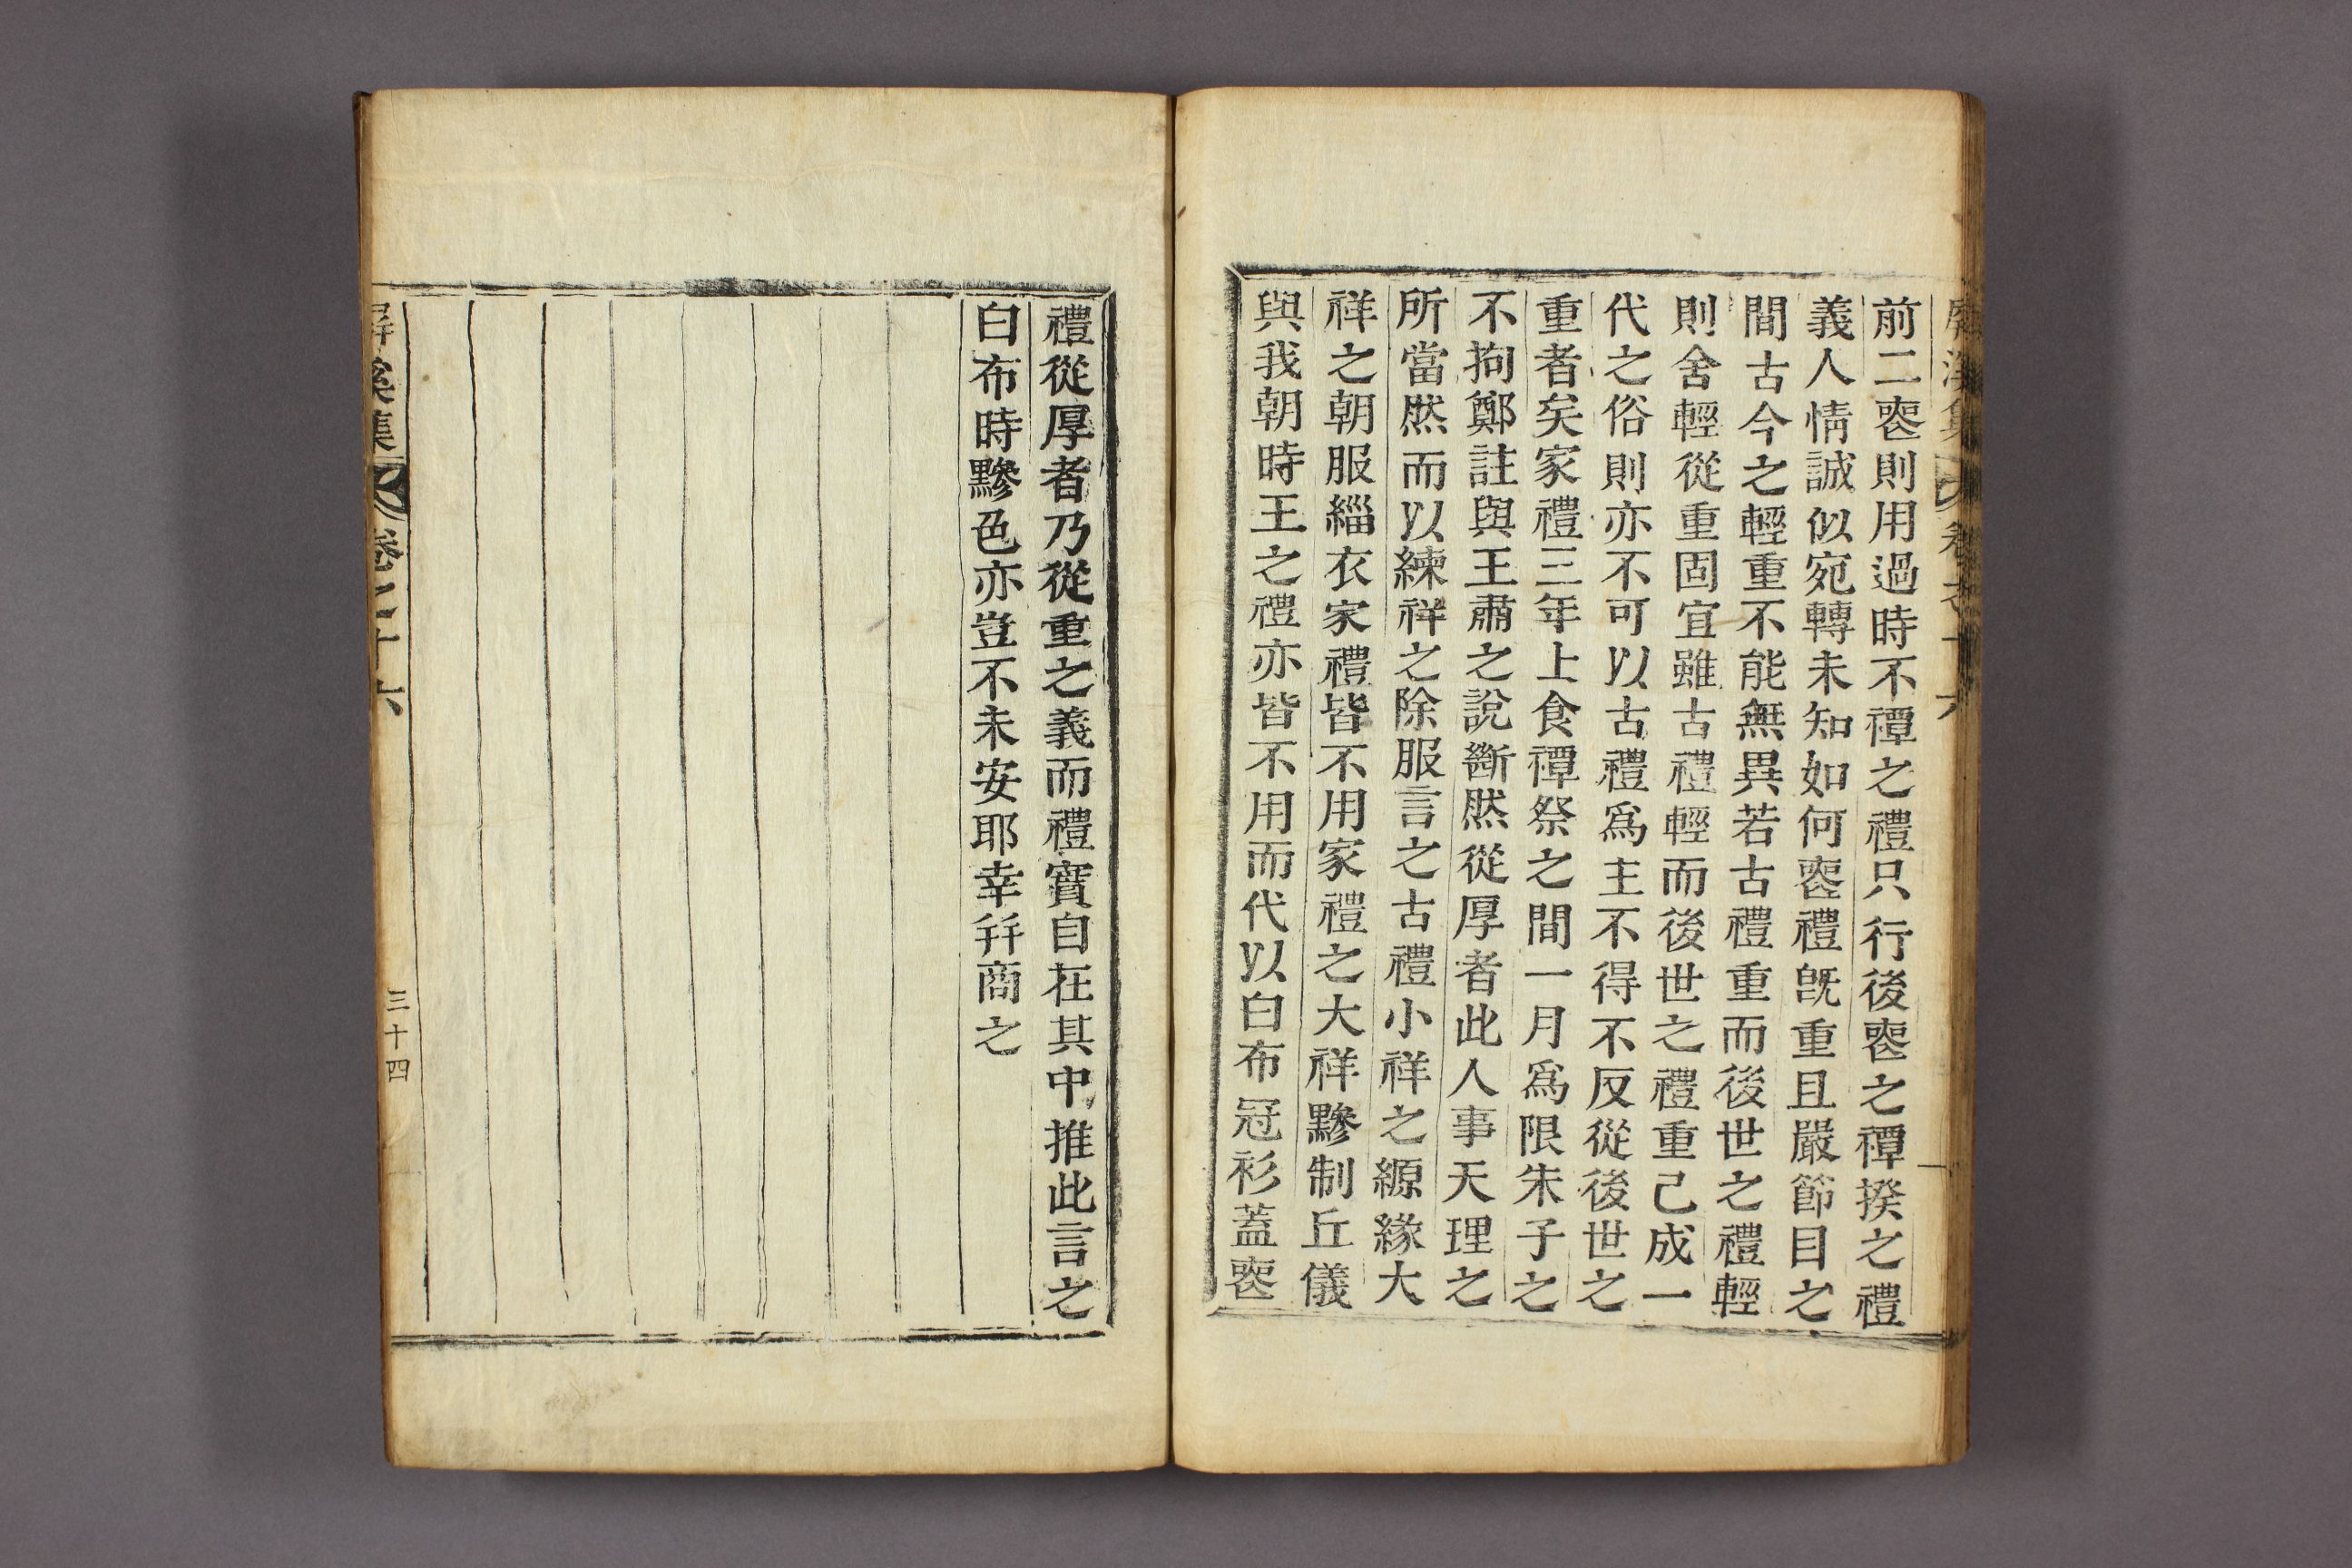 前二䘮則用過時不禫之禮只行後䘮之禫揆之禮
義人情誠似宛轉未知如何䘮禮旣重且嚴節目之
間古今之輕重不能無異若古禮重而後世之禮輕
則舍輕從重固宜雖古禮輕而後世之禮重已成一
代之俗則亦不可以古禮爲主不得不反從後世之
重者矣家禮三年上食禫祭之間一月爲限朱子之
不拘鄭註與王肅之說斷然從厚者此人事天理之
所當然而以練祥之除服言之古禮小祥之縓緣大
祥之朝服緇衣家禮皆不用家禮之大祥黲制丘儀
與我朝時王之禮亦皆不用而代以白布冠衫蓋䘮
禮從厚者乃從重之義而禮實自在其中推此言之
白布時黲色亦豈不未安耶幸幷商之
屛溪集 卷二十六 三十四